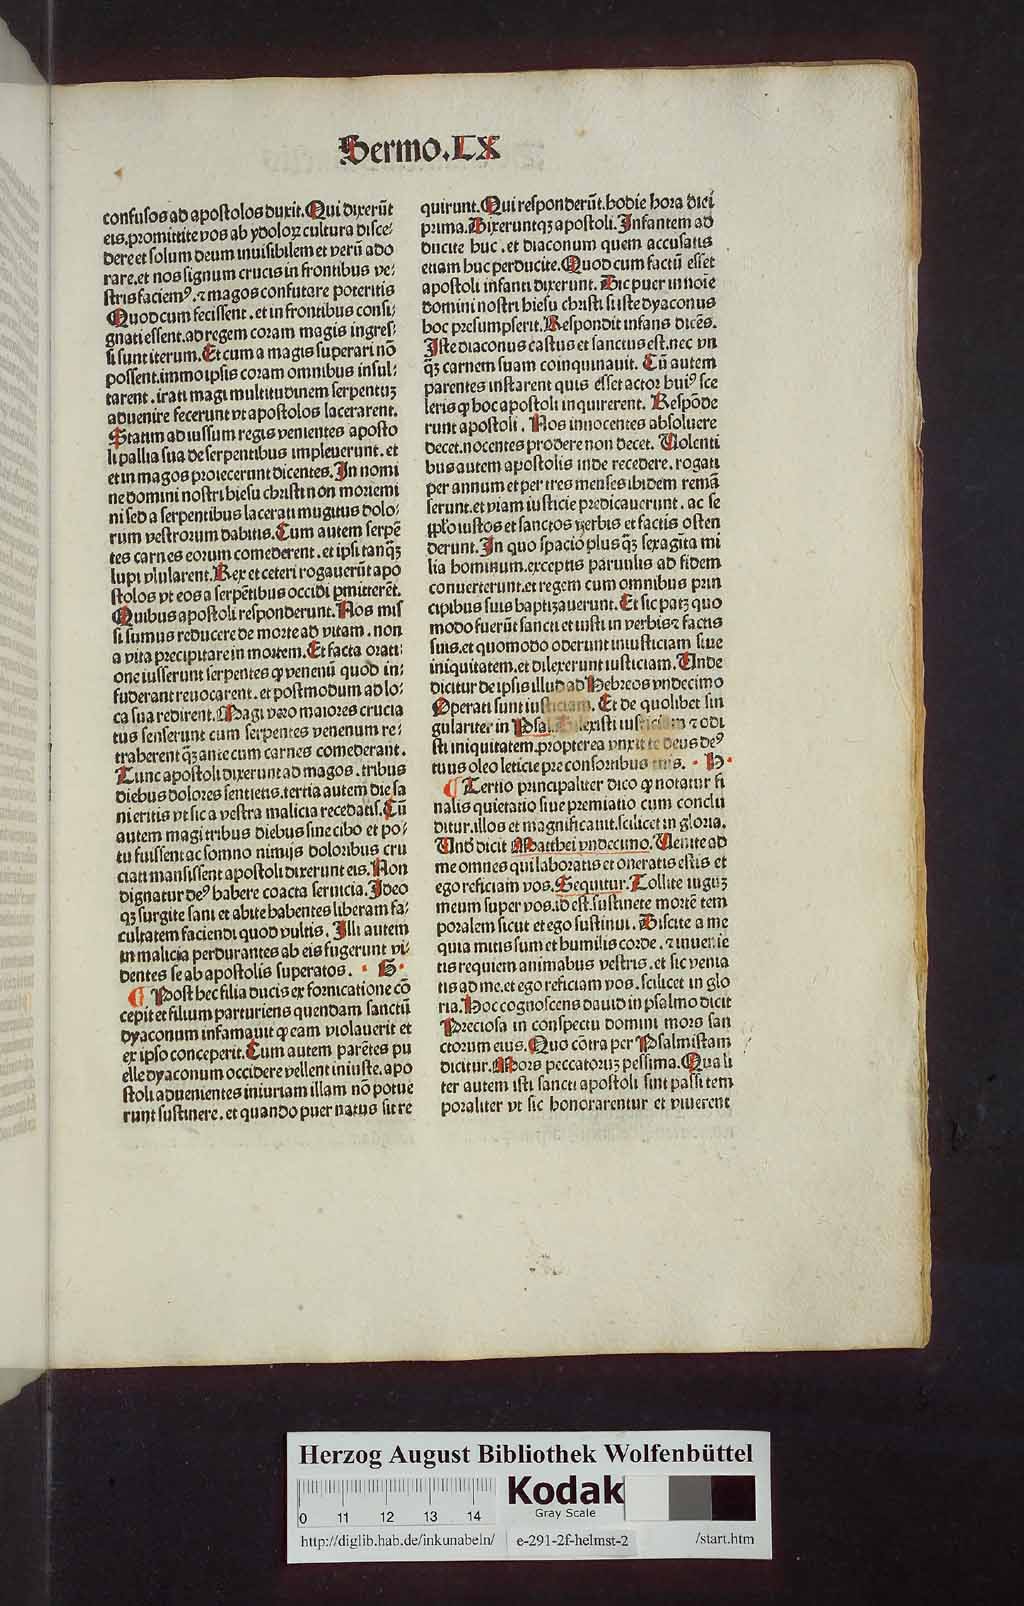 Sermo.LX
confusos ad apostolos duxit.Qui dixerūt
eis.promittite vos ab ydoloꝝ cultura disce⸗
dere et solum deum inuisibilem et verū ado
rare.et nos signum crucis in frontibus ve⸗
stris faciemꝰ.⁊ magos confutare poteritis
Quod cum fecissent.et in frontibus consi⸗
gnati essent.ad regem coram magis ingres⸗
si sunt iterum.Et cum a magis superari nō
possent.immo ipsis coram omnibus insul⸗
tarent.irati magi multitudinem serpentuꝫ
aduenire fecerunt vt apostolos lacerarent.
Statim ad iussum regis venientes aposto
li pallia sua de serpentibus impleuerunt.et
et in magos proiecerunt dicentes.In nomi
ne domini nostri hiesu christi non moriemi
ni sed a serpentibus lacerati mugitus dolo⸗
rum vestrorum dabitis.Cum autem serpē
tes carnes eorum comederent.et ipsi tanqꝫ
lupi vlularent.Rex et ceteri rogauerūt apo
stolos vt eos a serpētibus occidi ꝑmitterēt.
Quibus apostoli responderunt.Nos mis
si sumus reducere de morte ad vitam.non
a vita precipitare in mortem.Et facta orati⸗
one iusserunt serpentes ꝙ venenū quod in⸗
fuderant reuocarent.et postmodum ad lo⸗
ca sua redirent.Magi vero maiores crucia
tus senserunt cum serpentes venenum re⸗
traherent qꝫ ante cum carnes comederant.
Tunc apostoli dixerunt ad magos.tribus
diebus dolores sentietis.tertia autem die sa
ni eritis vt sic a vestra malicia recedatis.Cū
autem magi tribus diebus sine cibo et po⸗
tu fuissent ac somno nimijs doloribus cru
ciati mansissent apostoli dixerunt eis.Non
dignatur deꝰ habere coacta seruicia.Ideo
qꝫ surgite sani et abite habentes liberam fa⸗
cultatem faciendi quod vultis.Illi autem
in malicia perdurantes ab eis fugerunt vi⸗
dentes se ab apostolis superatos. · G ·
¶ Post hec filia ducis ex fornicatione cō
cepit et filium parturiens quendam sanctū
dyaconum infamauit ꝙ eam violauerit et
ex ipso conceperit.Cum autem parētes pu
elle dyaconum occidere vellent iniuste.apo
stoli aduenientes iniuriam illam nō potue
runt sustinere.et quando puer natus sit re
quirunt.Qui responderūt.hodie hora diei
prima.Dixeruntqꝫ apostoli.Infantem ad
ducite huc.et diaconum quem accusatis
etiam huc perducite.Quod cum factū esset
apostoli infanti dixerunt.Dic puer in noīe
domini nostri hiesu christi si iste dyaconus
hoc presumpserit.Respondit infans dicēs.
Iste diaconus castus et sanctus est.nec vn
qꝫ carnem suam coinquinauit.Cū autem
parentes instarent quis esset actor huiꝰ sce
leris ꝙ hoc apostoli inquirerent.Respōde
runt apostoli.Nos innocentes absoluere
decet.nocentes prodere non decet.Uolenti
bus autem apostolis inde recedere.rogati
per annum et per tres menses ibidem remā
serunt.et viam iusticie predicauerunt.ac se
iustos et sanctos verbis et factis osten
derunt.In quo spacio plus qꝫ sexagīta mi
lia hominum.exceptis paruulis ad fidem
conuerterunt.et regem cum omnibus prin
cipibus suis baptizauerunt.Et sic patꝫ quo
modo fuerūt sancti et iusti in verbis ⁊ factis
suis.et quomodo oderunt iniusticiam siue
iniquitatem.et dilexerunt iusticiam.Unde
dicitur de ipsis illud ad Hebreos vndecimo
Operati sunt iusticiam.Et de quolibet sin
gulariter in Psal.Dilexisti iusticiam ⁊ odi
sti iniquitatem.propterea vnxit te deus deꝰ
tuus oleo leticie pre consortibus tuis. · H ·
¶ Tertio principaliter dico ꝙ notatur fi
nalis quietatio siue premiatio cum conclu
ditur.illos et magnificauit.scilicet in gloria.
Und dicit Matthei vndecimo.Uenite ad
me omnes qui laboratis et onerati estis et
ego reficiam vos.Sequitur.Tollite iuguꝫ
meum super vos.id est.sustinete mortē tem
poralem sicut et ego sustinui.Discite a me
quia mitis sum et humilis corde.⁊ inuenie
tis requiem animabus vestris.et sic venia
tis ad me.et ego reficiam vos.scilicet in glo
ria.Hoc cognoscens dauid in psalmo dicit
Preciosa in conspectu domini mors san
ctorum eius.Quo cōtra per Psalmistam
dicitur.Mors peccatorꝫ pessima.Quali
ter autem isti sancti apostoli sint passi tem
poraliter vt sic honorarentur et viuerent
Herzog August Bibliothek Wolfenbüttel
0 11 12 13 14
Kodak
Gray Scale
http://diglib.hab.de/inkunabeln/ e-291-2f-helmst-2 /start.htm